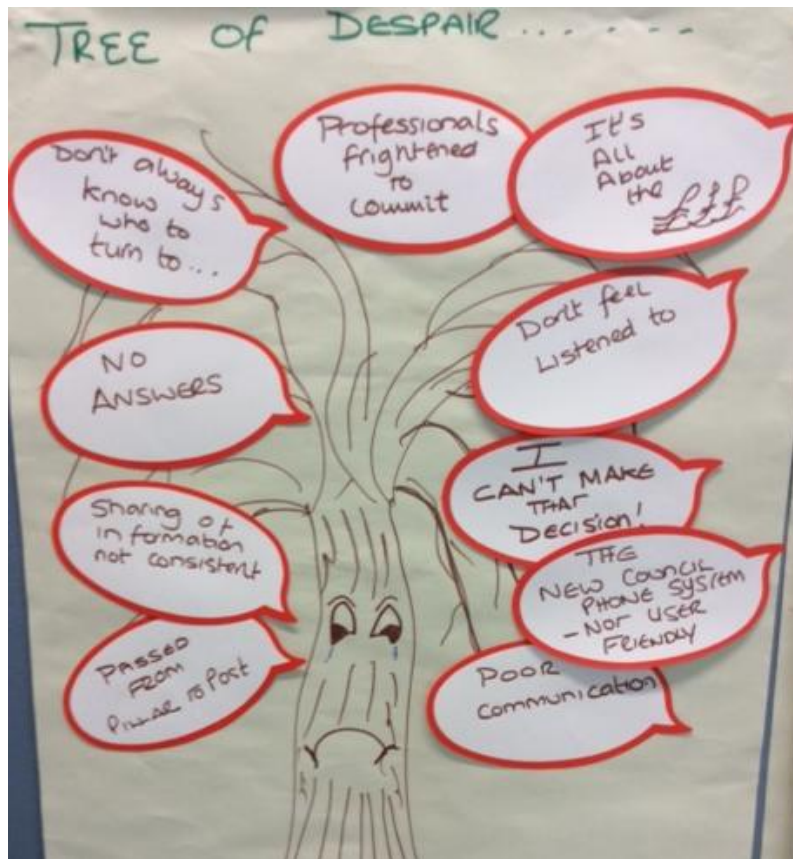 TREE OF DESPAIR.......
Don't always
know
who to
turn to...
Professionals
frightened
to
commit
It's
All
About
the £££
NO
ANSWERS
Don't feel
Listened to
Sharing of
information
not consistent
I
CAN'T MAKE
THAT
DECISION!
THE
NEW COUNCIL
PHONE SYSTEM
- NOT USER
FRIENDLY
PASSED
FROM
PILLAR to Post
POOR
communication